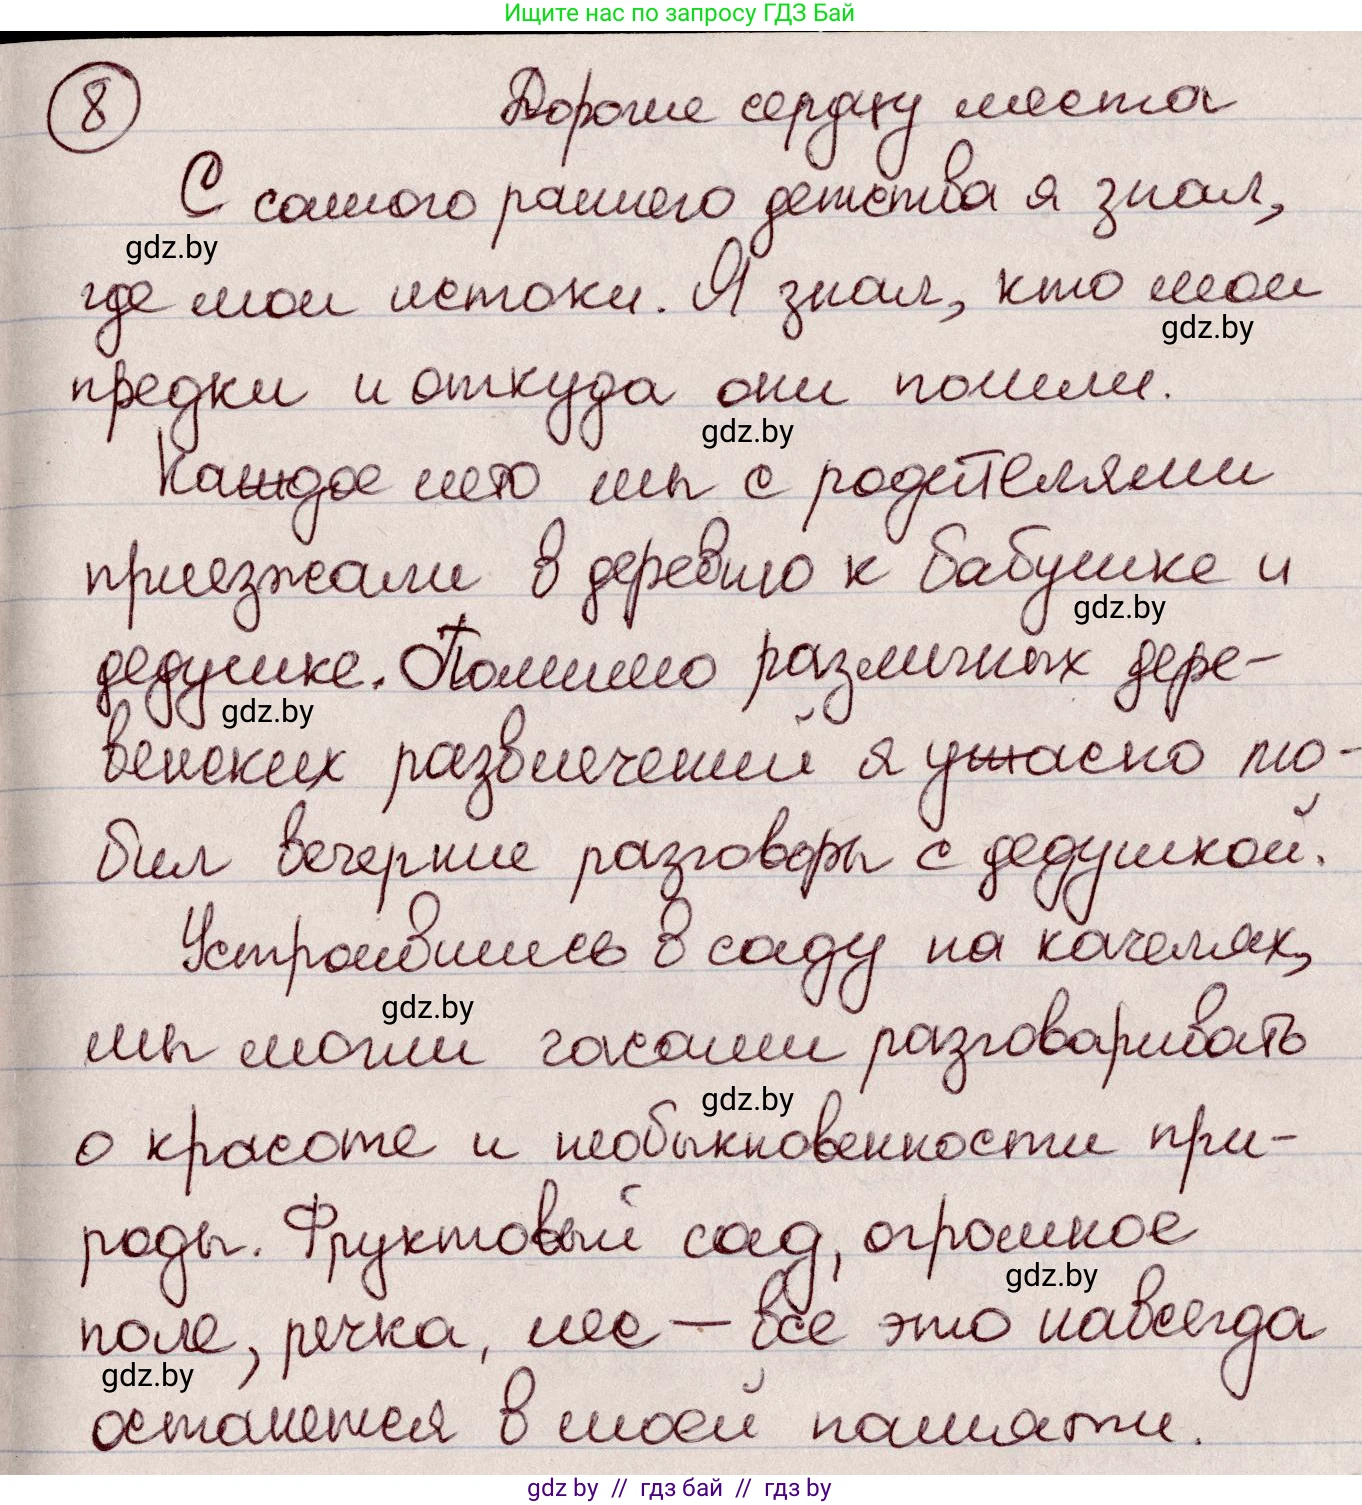 Ищите нас по запросу ГДЗ Бай
8 Дорогие сердцу места
С самого раннего детства я знал,
gdz.by
где мои истоки. Я знал, кто мои
gdz.by
предки и откуда они пошли.
gdz.by
Каждое лето мы с родителями
приезжали в деревню к бабушке и
gdz.by
дедушке. Помимо различных дере-
gdz.by
венских развлечений я ужасно лю-
бил вечерние разговоры с дедушкой.
Устроившись в саду на качелях,
gdz.by
мы могли часами разговаривать
gdz.by
о красоте и необыкновенности при-
роды. Фруктовый сад, огромное
gdz.by
поле, речка, лес – все это навсегда
gdz.by
останется в моей памяти.
gdz.by // гдз бай // гдз by